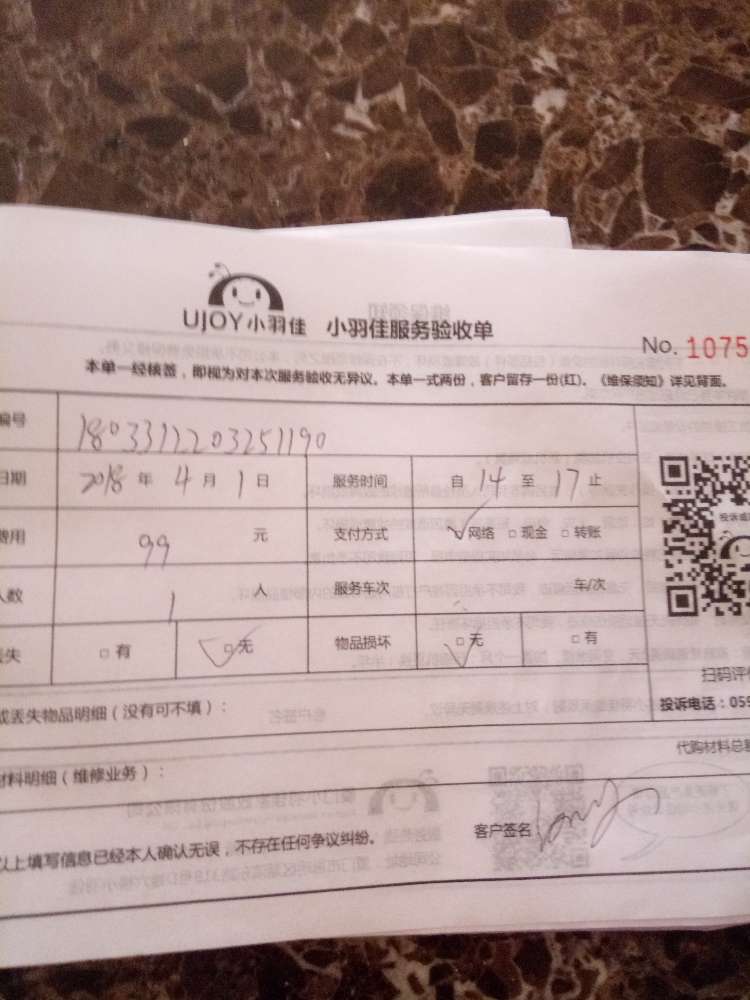 UJOY小羽佳 小羽佳服务验收单
No. 1075
本单一经核签，即视为对本次服务验收无异议。本单一式两份，客户留存一份(红)。《维保须知》详见背面。
编号 1803311203251190
日期 2018 年 4 月 1 日 服务时间 自 14 至 17 止
费用 99 元 支付方式 网络 □ 现金 □ 转账
人数 1 人 服务车次 车/次
失 □ 有 □ 无 物品损坏 □ 无 □ 有
投诉或
扫码评
投诉电话：059
或丢失物品明细（没有可不填）：
代购材料总
材料明细（维修业务）：
以上填写信息已经本人确认无误，不存在任何争议纠纷。
客户签名